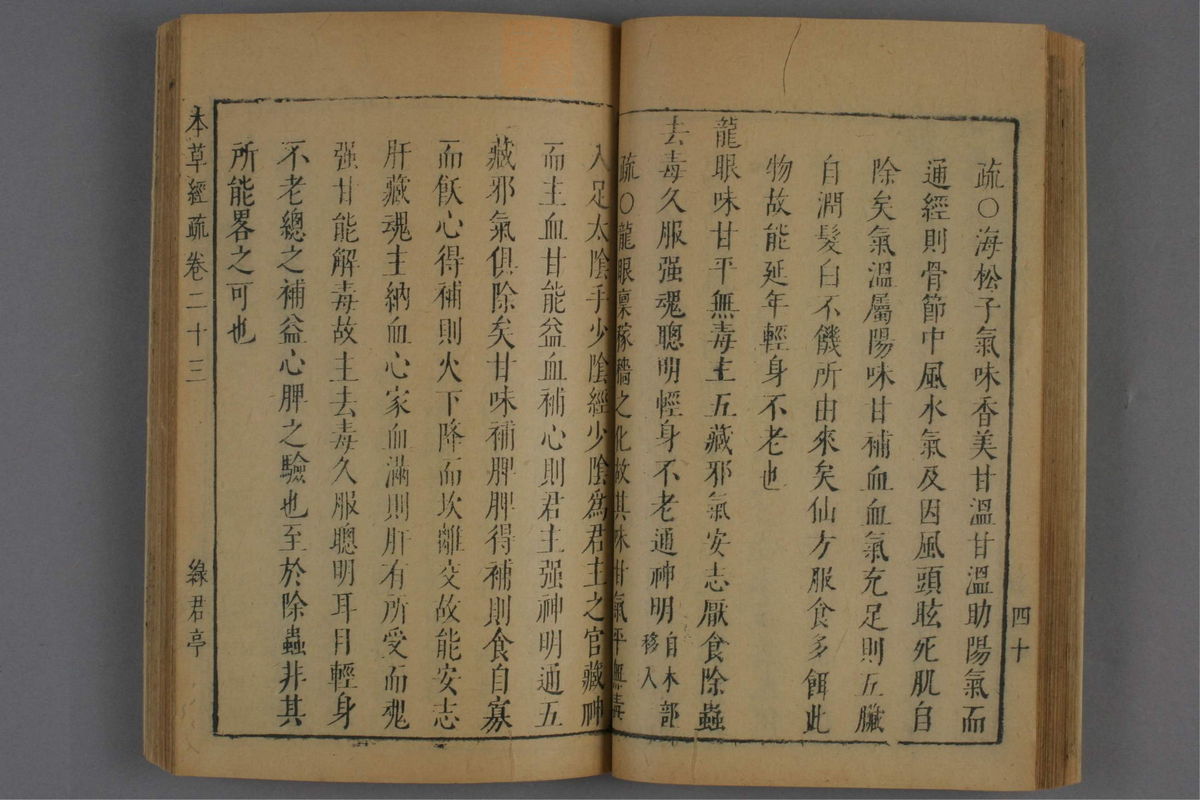 疏○海松子氣味香美甘溫甘溫助陽氣而
通經則骨節中風水氣及因風頭眩死肌自
除矣氣溫屬陽味甘補血血氣充足則五臟
自潤髮白不饑所由來矣仙方服食多餌此
物故能延年輕身不老也
龍眼味甘平無毒主五藏邪氣安志厭食除蟲
去毒久服强魂聰明輕身不老通神明自木部移入
疏○龍眼稟稼穡之化故其味甘氣平無毒
入足太陰手少陰經少陰爲君主之官藏神
而主血甘能益血補心則君主强神明通五
藏邪氣俱除矣甘味補脾脾得補則食自寡
而飫心得補則火下降而坎離交故能安志
肝藏魂主納血心家血滿則肝有所受而魂
强甘能解毒故主去毒久服聰明耳目輕身
不老總之補益心脾之驗也至於除蟲非其
所能畧之可也
四十
本草經疏卷二十三
綠君亭